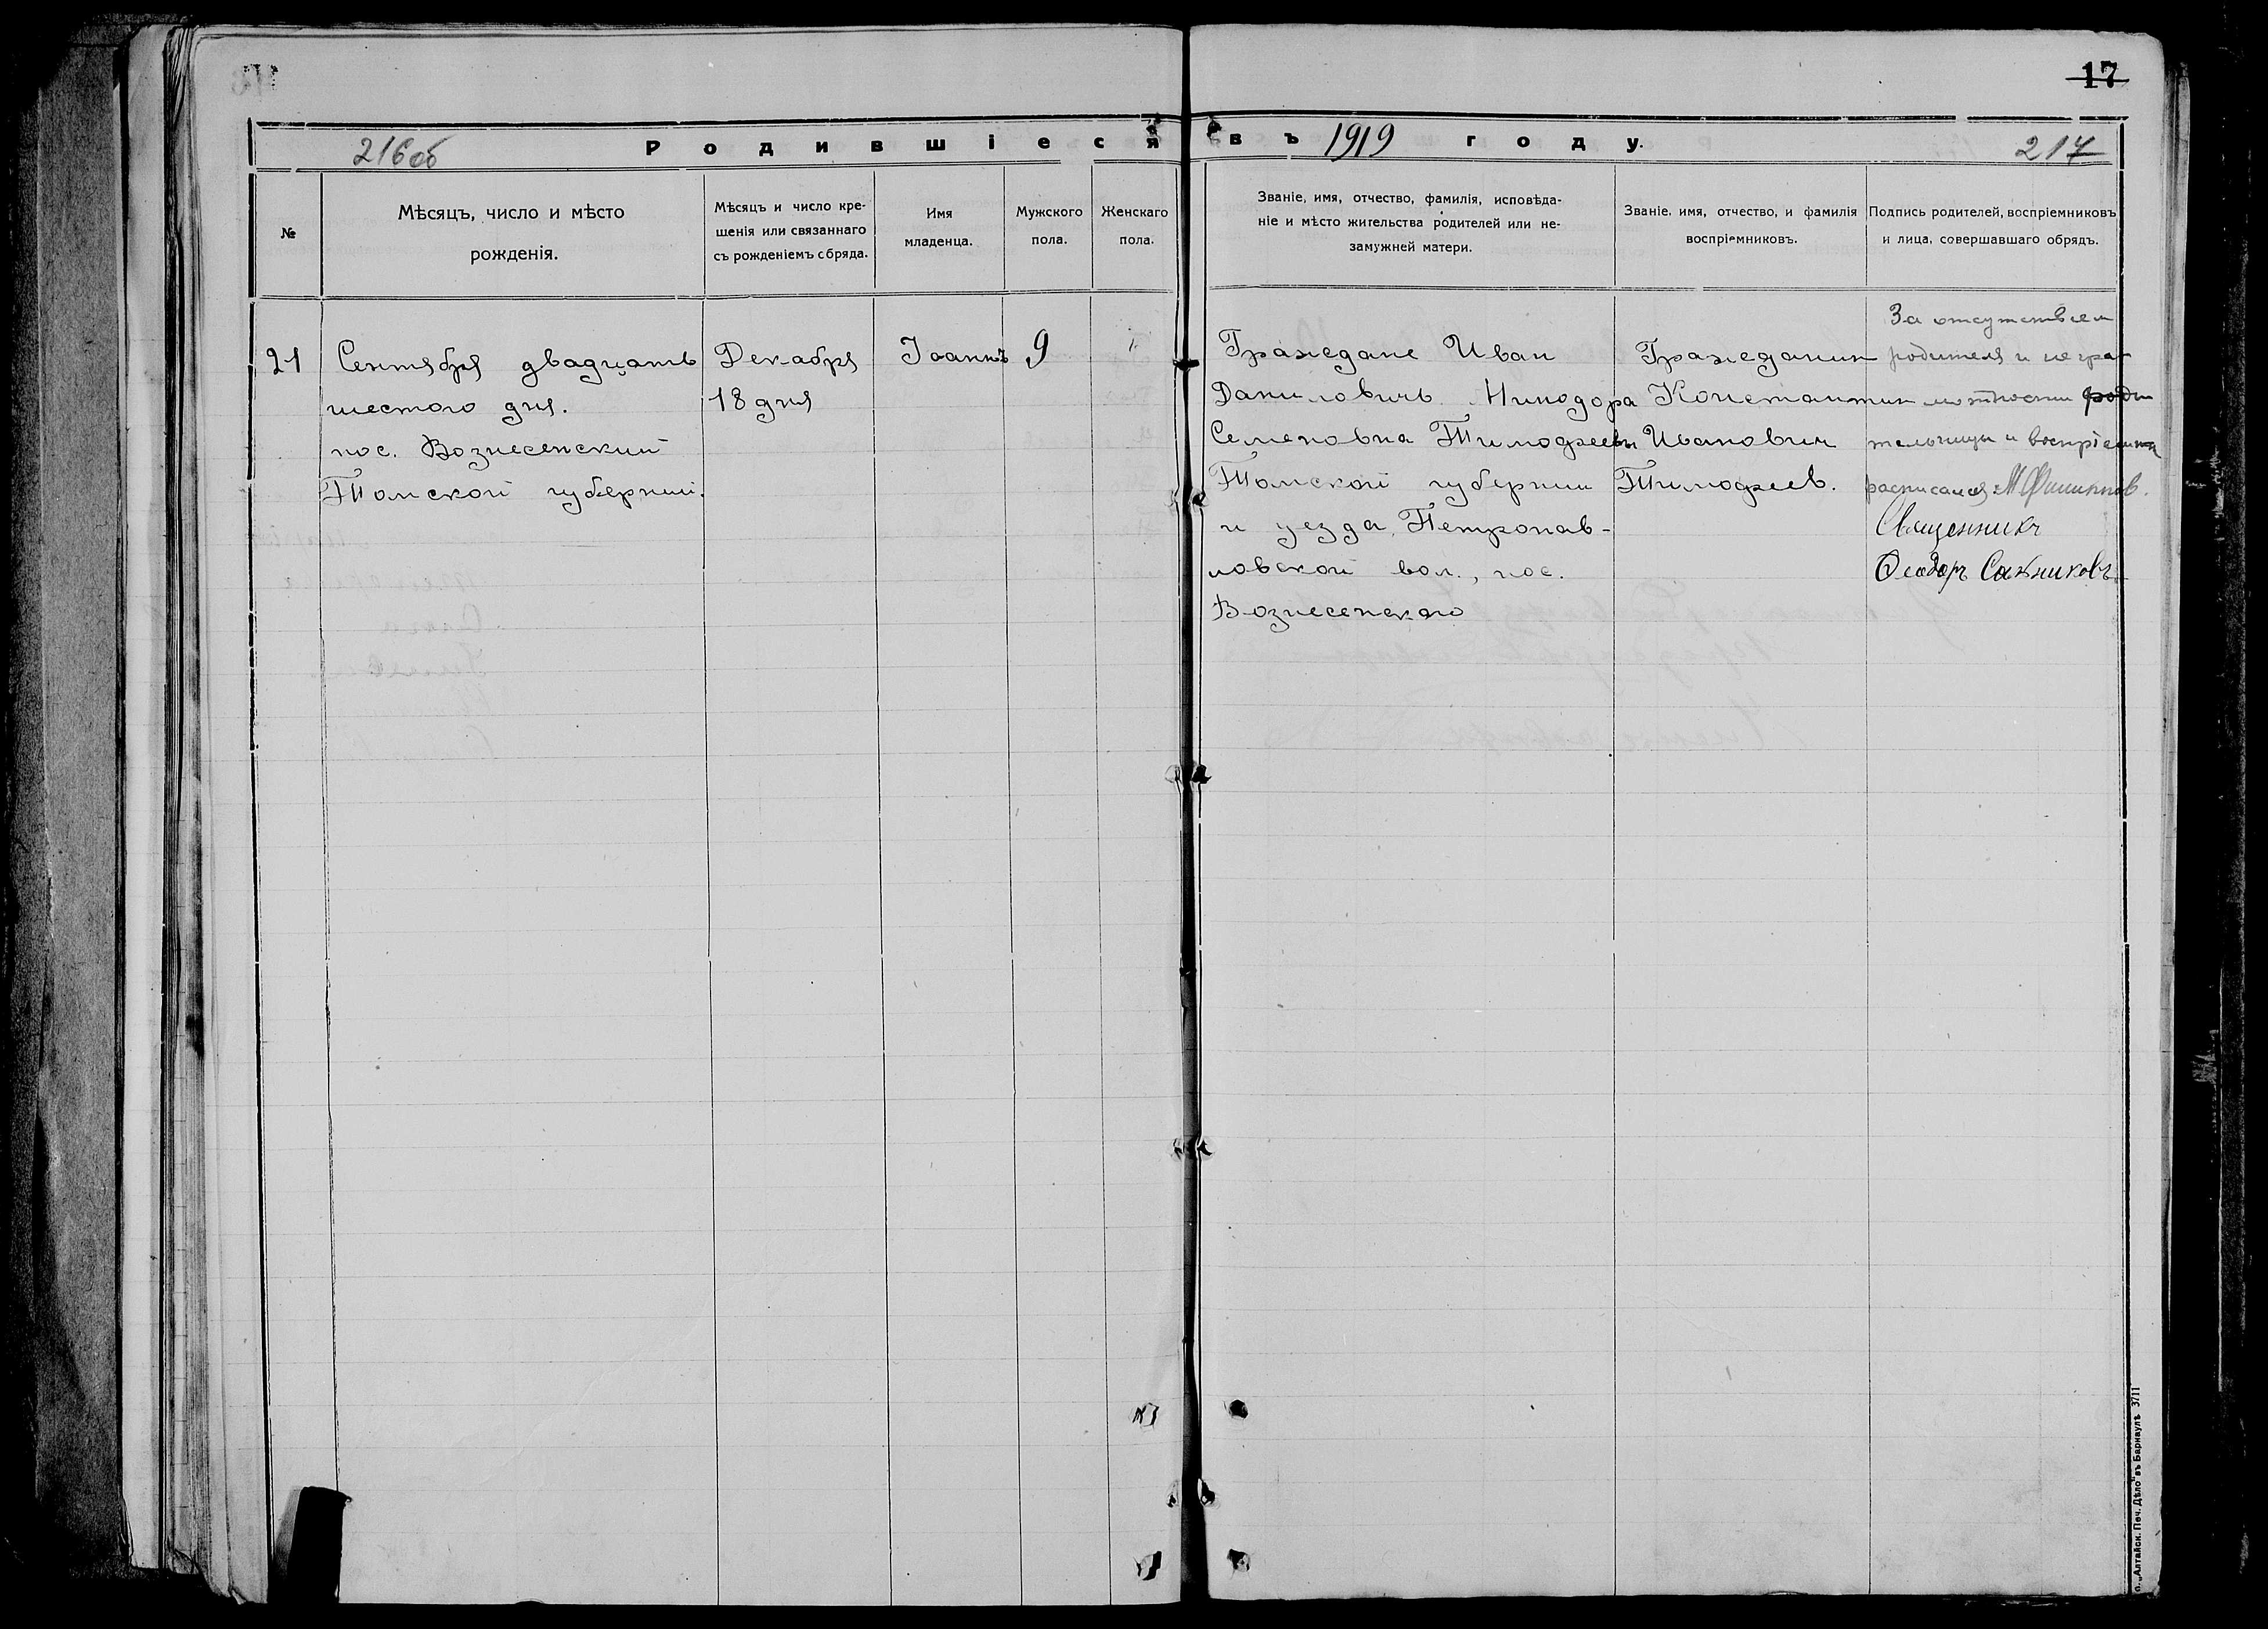 17
216об
Родившіеся въ 1919 году.
217
№
Мѣсяцъ, число и мѣсто
рожденія.
Мѣсяцъ и число кре-
щенія или связаннаго
съ рожденіемъ обряда.
Имя
младенца.
Мужского
пола.
Женскаго
пола.
Званіе, имя, отчество, фамилія, исповѣда-
ніе и мѣсто жительства родителей или не-
замужней матери.
Званіе, имя, отчество, и фамилія
воспріемниковъ.
Подпись родителей, воспріемниковъ
и лица, совершавшаго обрядъ.
21
Сентября двадцать
шестого дня.
пос. Вознесенский
Томской губернии.
Декабря
18 дня
Іоаннъ
9
Граждане Иван
Данилович Минодора
Семеновна Тимофеевы
Томской губернии
и уезда, Петропав-
ловской вол., пос.
Вознесенского
Гражданин
Константин
Иванович
Тимофеев.
За отсутствием
родителя и негра-
мотности роди
тельницы и воспріемника
расписался М Филиппов.
Священникъ
Ѳеодоръ
п. „Алтайск. Печ. Дѣло" въ Барнаулѣ 3711